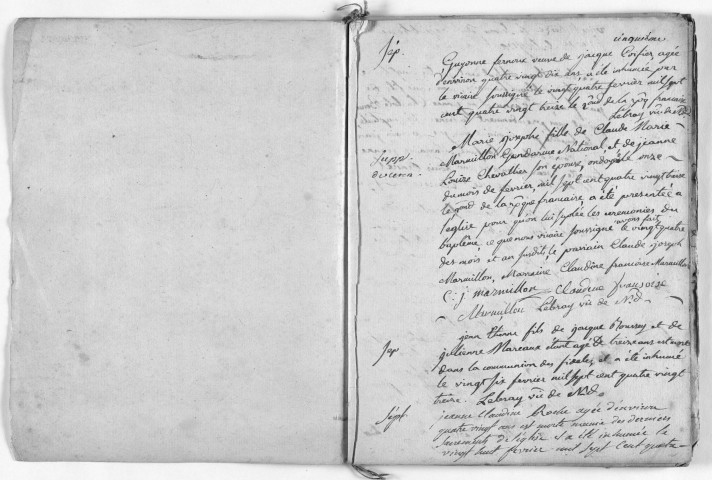 cinquieme
Sép.
Guyonne ferrerie veuve de jacque Coifier agée
d'environ quatre vingt dix ans a été inhumée par
le vicaire soussigné le vingt quatre fevrier mil sept
cent quatre vingt treize le 2nd de la rép. francaise
Lebray vic de N.d
Marie josephe fille de Claude Marie
Marmillon Gendarme National, et de jeanne
Supp.
Louise Chevallier son épouse, ondoyée le onze
de cerem.
du mois de fevrier, mil sept cent quatre vingt treize
le second de la rép francaise, a été presentée a
l'eglise pour qu'on lui suplée les ceremonies du
baptême, ce que nous vicaire soussigné avons fait le vingt quatre
des mois et an susdits le parrain Claude joseph
Marmillon, Marraine Claudine francoise Marmillon
C. j. marmillon Claudine francoise
Marmillon Lebray vic de N.d.
jean Etienne fils de jacque Moussy et de
Sep
julienne Mareaux etant agé de treize ans est mort
dans la communion des fideles, et a été inhumé
le vingt six fevrier mil sept cent quatre vingt
treize. Lebray vic de N.d.
Sépt.
jeanne Claudine Roche agée d'environ
quatre vingt ans est morte munie des derniers
sacrements de l'église et a été inhumée le
vingt huit fevrier mil sept cent quatre